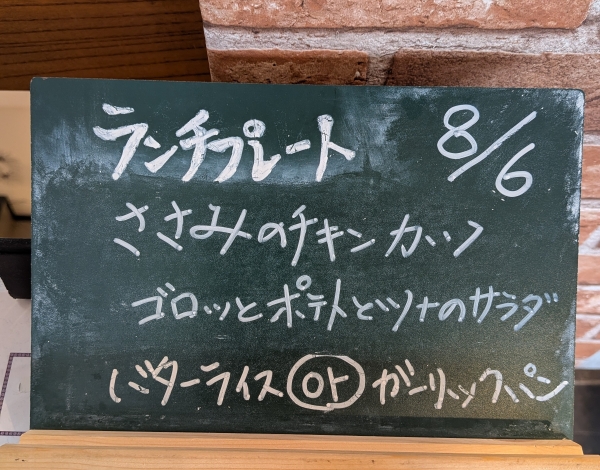 ランチプレート 8/6
ささみのチキンカツ
ゴロッとポテトとツナのサラダ
バターライス or ガーリックパン